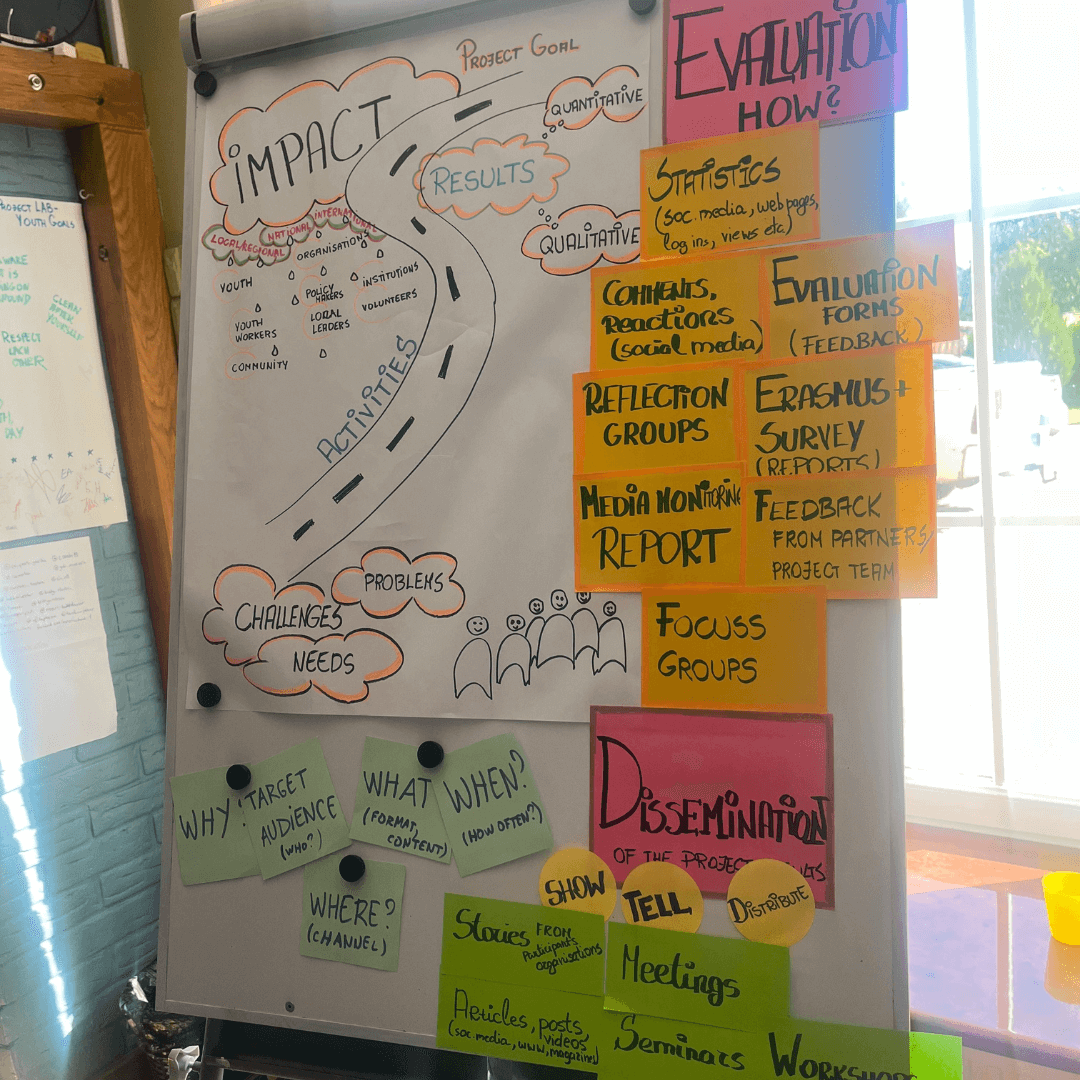 PROJECT GOAL
IMPACT
QUANTITATIVE
RESULTS
QUALITATIVE
LOCAL/REGIONAL
NATIONAL
INTERNATIONAL
YOUTH
ORGANISATIONS
POLICY
MAKERS
INSTITUTIONS
YOUTH
WORKERS
LOCAL
LEADERS
VOLUNTEERS
COMMUNITY
ACTIVITIES
CHALLENGES
PROBLEMS
NEEDS
EVALUATION
HOW?
STATISTICS
(soc. media, webpages,
log ins, views etc)
COMMENTS,
Reactions
(social media)
EVALUATION
FORMS
(FEEDBACK)
REFLECTION
GROUPS
ERASMUS+
SURVEY
(REPORTS)
MEDIA MONITORING
REPORT
FEEDBACK
FROM PARTNERS/
PROJECT TEAM
FOCUSS
GROUPS
WHY?
TARGET
AUDIENCE
(WHO?)
WHAT
(FORMAT,
CONTENT)
WHEN?
(HOW OFTEN?)
WHERE?
(CHANNEL)
DISSEMINATION
OF THE PROJECT
SHOW
TELL
DISTRIBUTE
Stories FROM
Participants
organisations
Meetings
Articles, posts,
videos
(soc. media, www, magazines)
Seminars
WORKSHOPS
PROJECT LAB-
YOUTH GOALS
CLEAN
AFTER
YOURSELF
RESPECT
EACH
OTHER
DAY